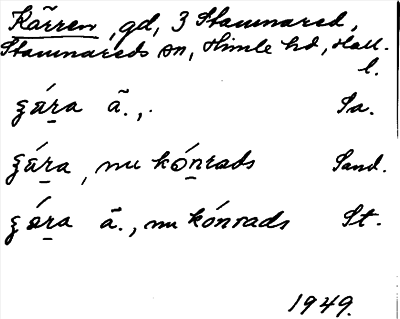 Kärren, gd, 3 Stamnared,
Stamnareds sn, Himle hd, Hall.
l.
ʒára ã., . Sa.
ʒára, nu kónrads Sand.
ʒóra ã., nu kónrads St.
1949.